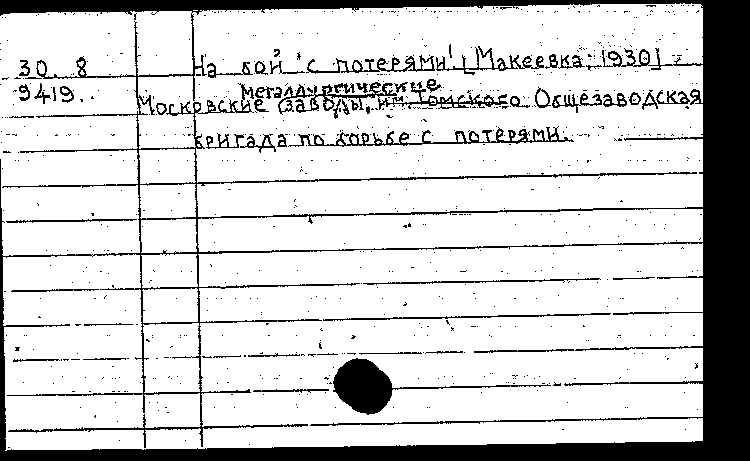 30. 8 На бой с потерями! [Макеевка; 1930]
9419.. металлургические
Московские (заводы, им. Томского Общезаводская
бригада по борьбе с потерями.